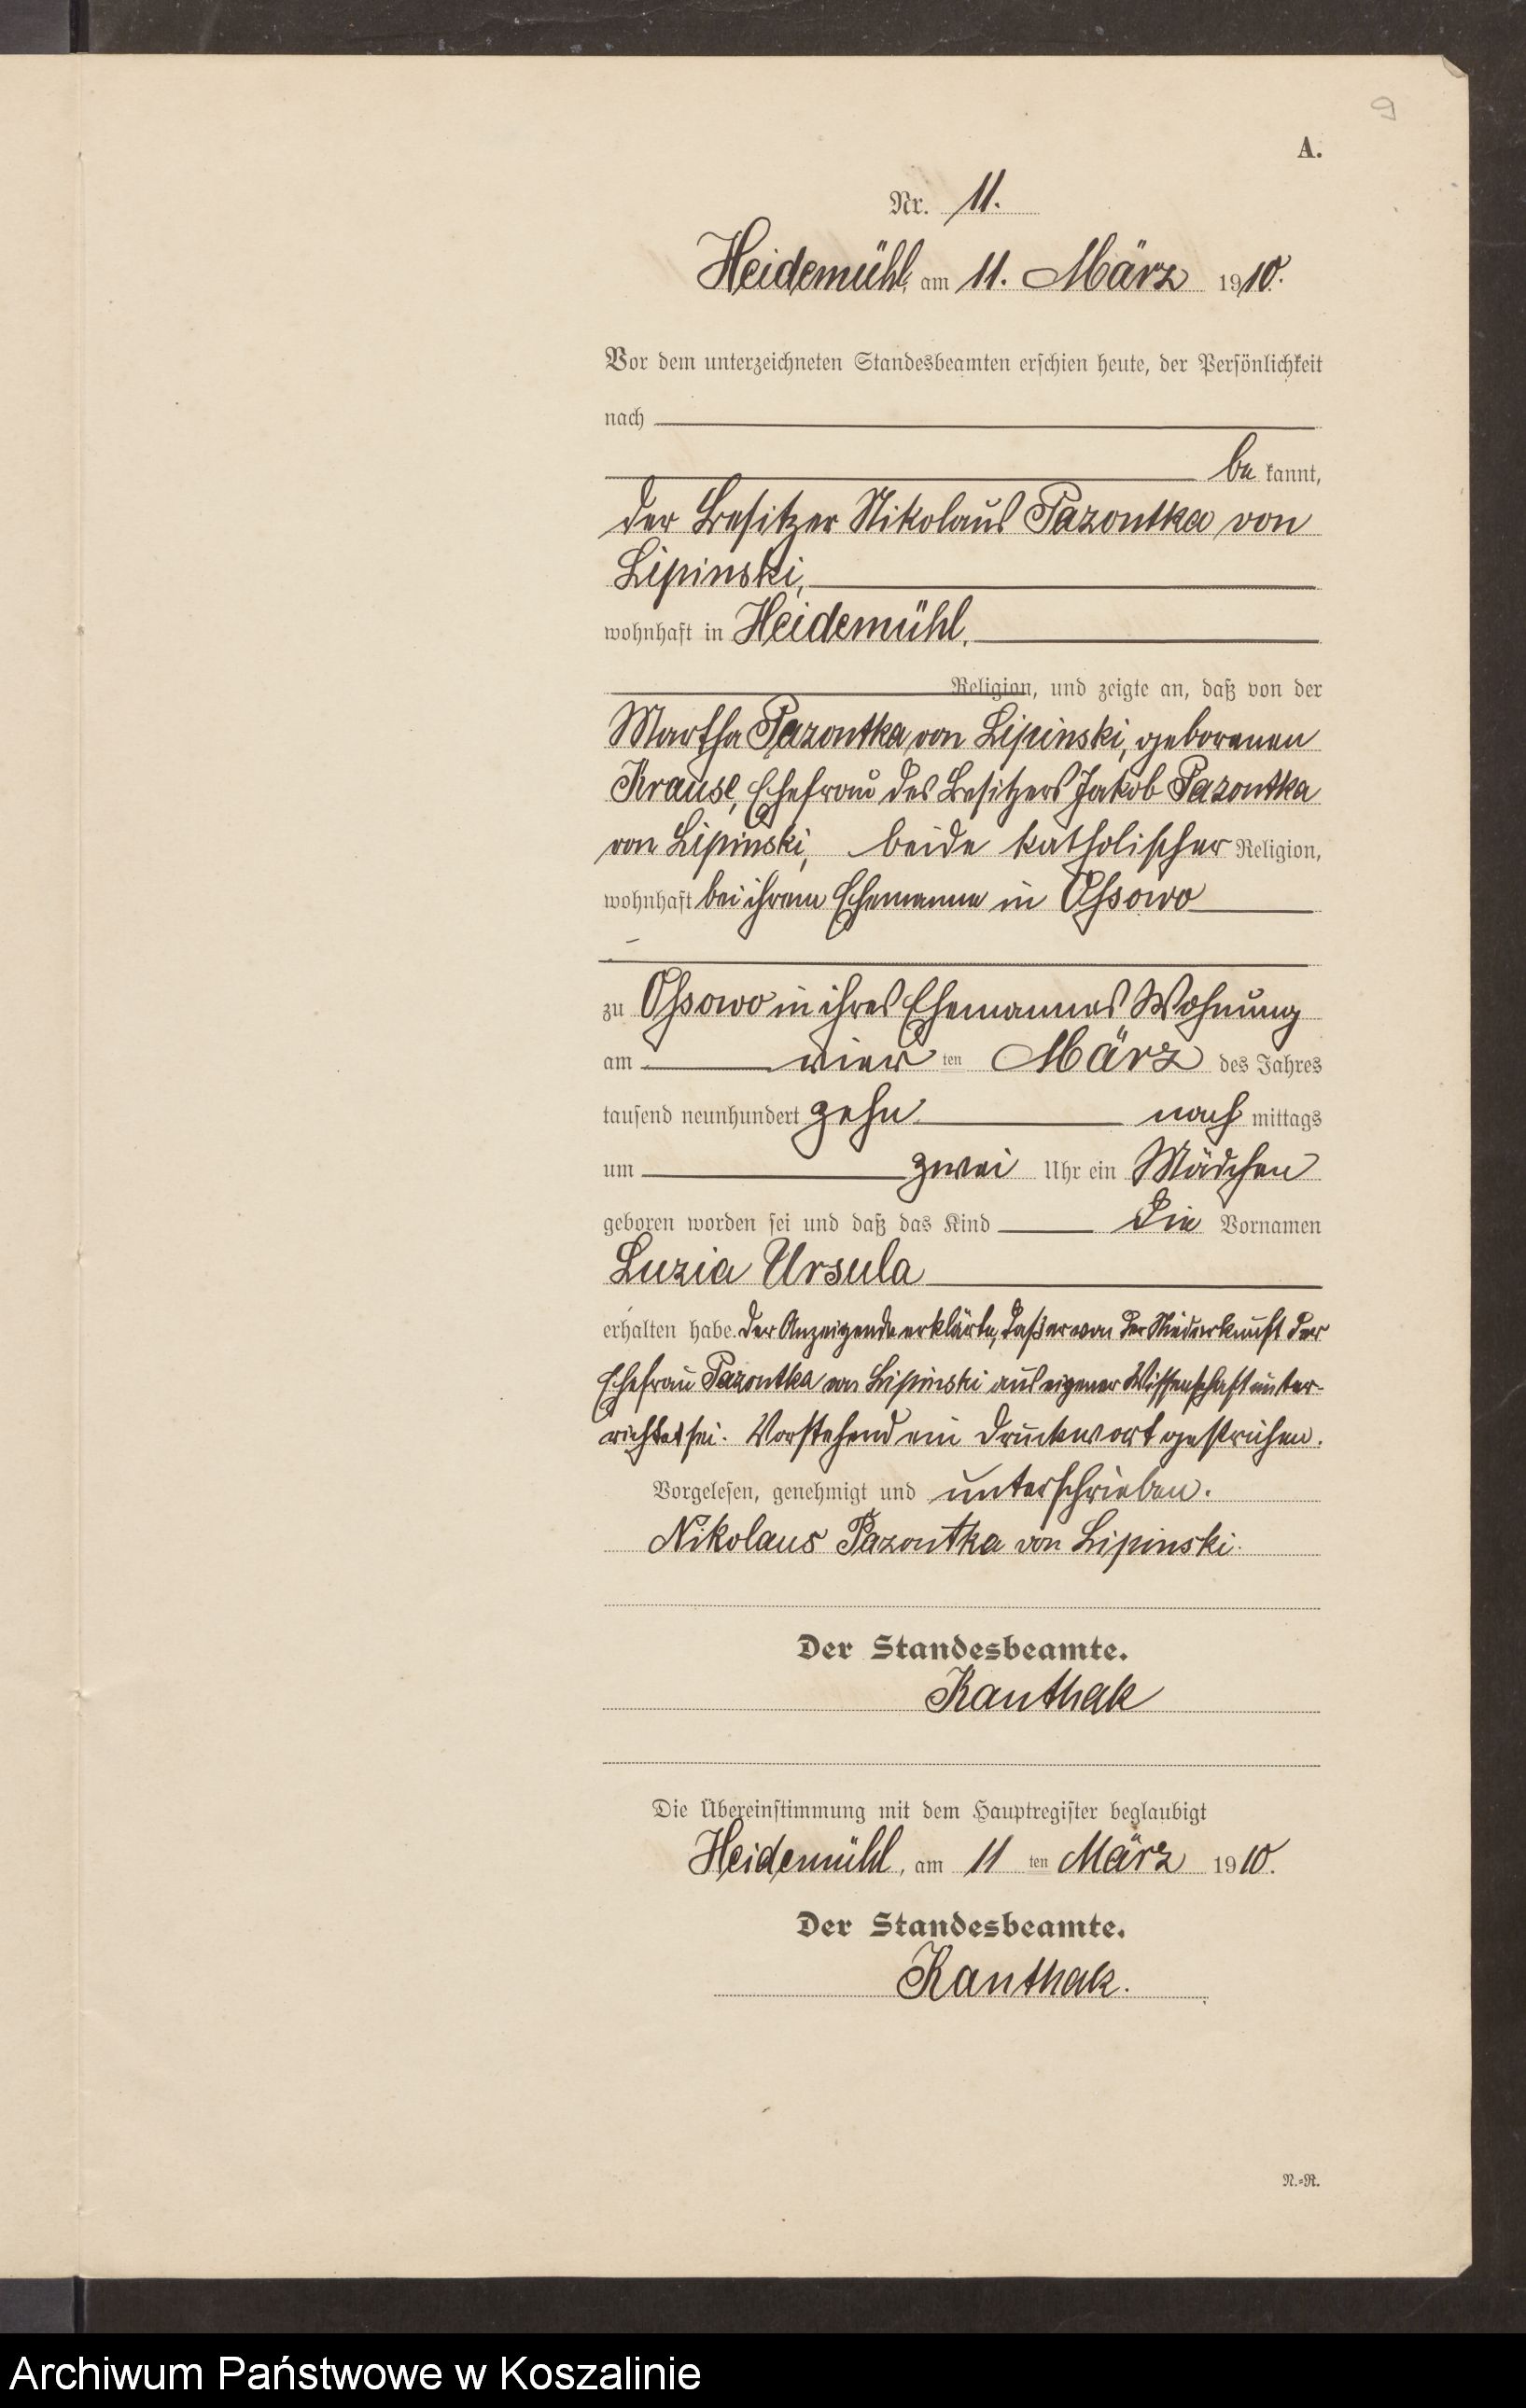 9
A.
Nr. 11.
Heidemühl, am 11. März 1910.
Vor dem unterzeichneten Standesbeamten erschien heute, der Persönlichkeit
nach
be kannt,
der Besitzer Nikolaus Pazontka von
Lipinski,
wohnhaft in Heidemühl,
Religion, und zeigte an, daß von der
Martha Pazontka von Lipinski, geborenen
Krause, Ehefrau des Besitzers Jakob Pazontka
von Lipinski, beide katholischer Religion,
wohnhaft bei ihrem Ehemanne in Ossowo
zu Ossowo in ihres Ehemannes Wohnung
am vier ten März des Jahres
tausend neunhundert zehn nach mittags
um zwei Uhr ein Mädchen
geboren worden sei und daß das Kind die Vornamen
Luzia Ursula
erhalten habe. Der Anzeigende erklärte, daß er von der Niederkunft der
Ehefrau Pazontka von Lipinski aus eigener Wissenschaft unter-
richtet sei. Vorstehend ein Druckwort gestrichen.
Vorgelesen, genehmigt und unterschrieben.
Nikolaus Pazontka von Lipinski.
Der Standesbeamte.
Kanthak
Die Übereinstimmung mit dem Hauptregister beglaubigt
Heidemühl, am 11 ten März 1910.
Der Standesbeamte.
Kanthak.
N.=R.
Archiwum Państwowe w Koszalinie